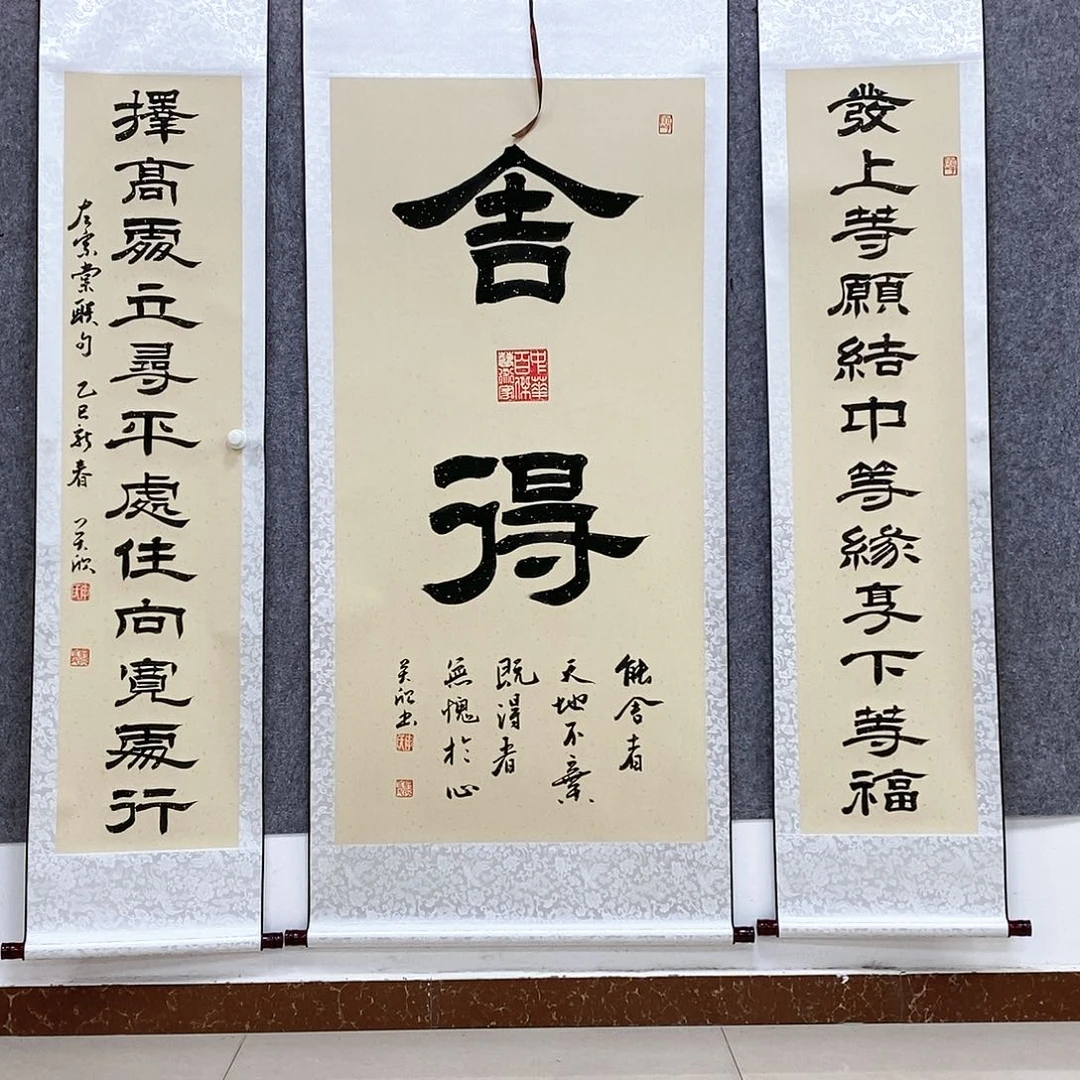 發上等願結中等緣享下等福
舍得
中華
百傑
能舍者
天地不棄
既得者
無愧於心
欣书
擇高處立尋平處住向寬處行
左宗棠联句 乙巳新春 欣